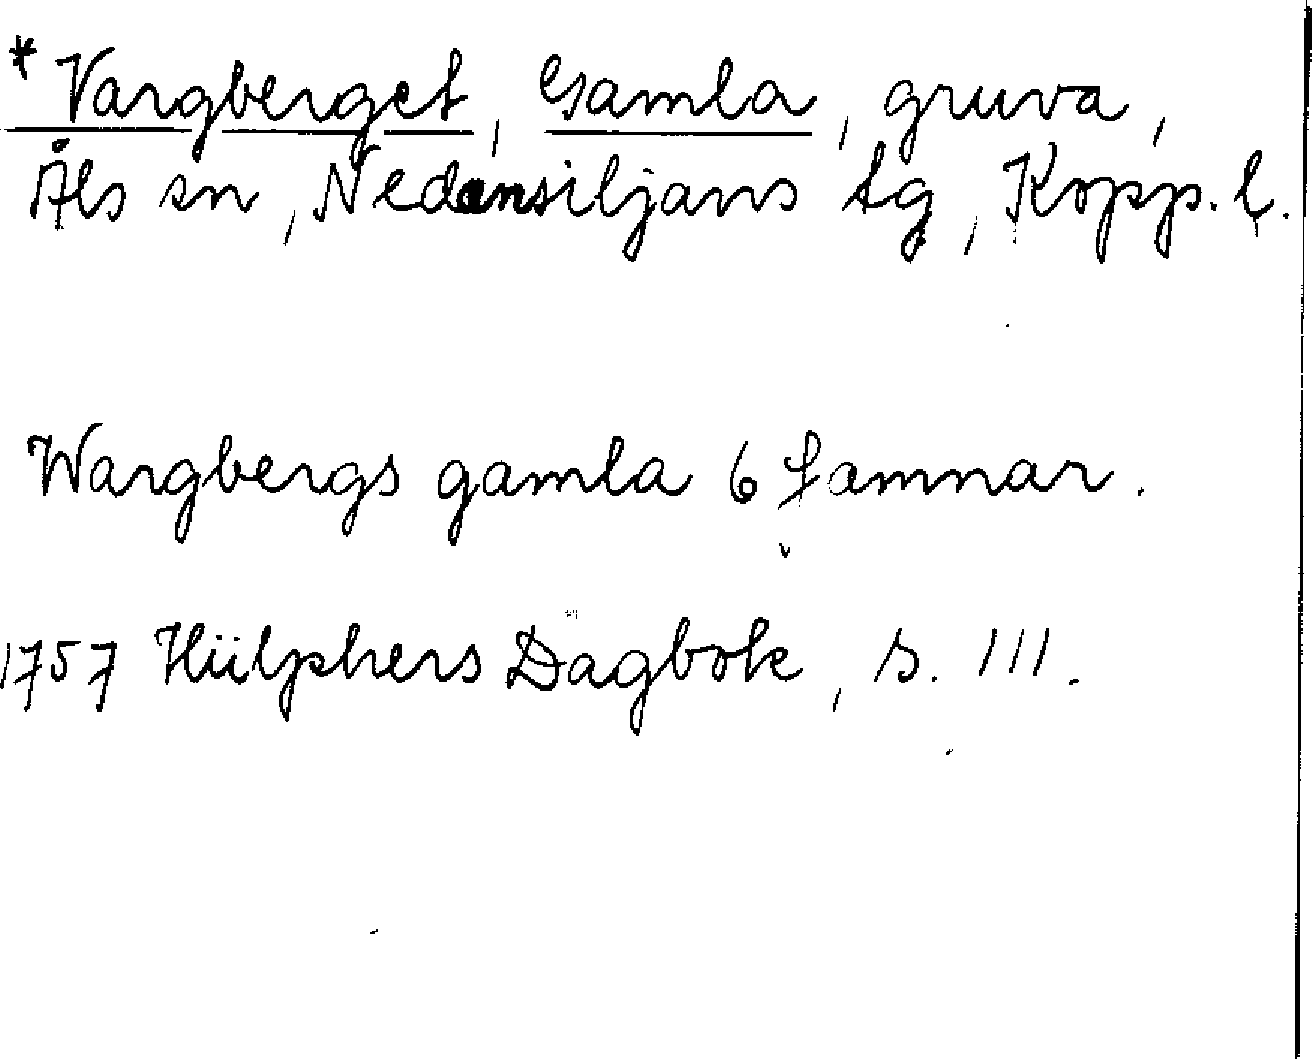 *Vargberget, Gamla, gruva,
Åls sn, Nedansiljans tg, Kopp. l.
Wargbergs gamla 6 famnar.
1757 Hülphers Dagbok, s. 111.